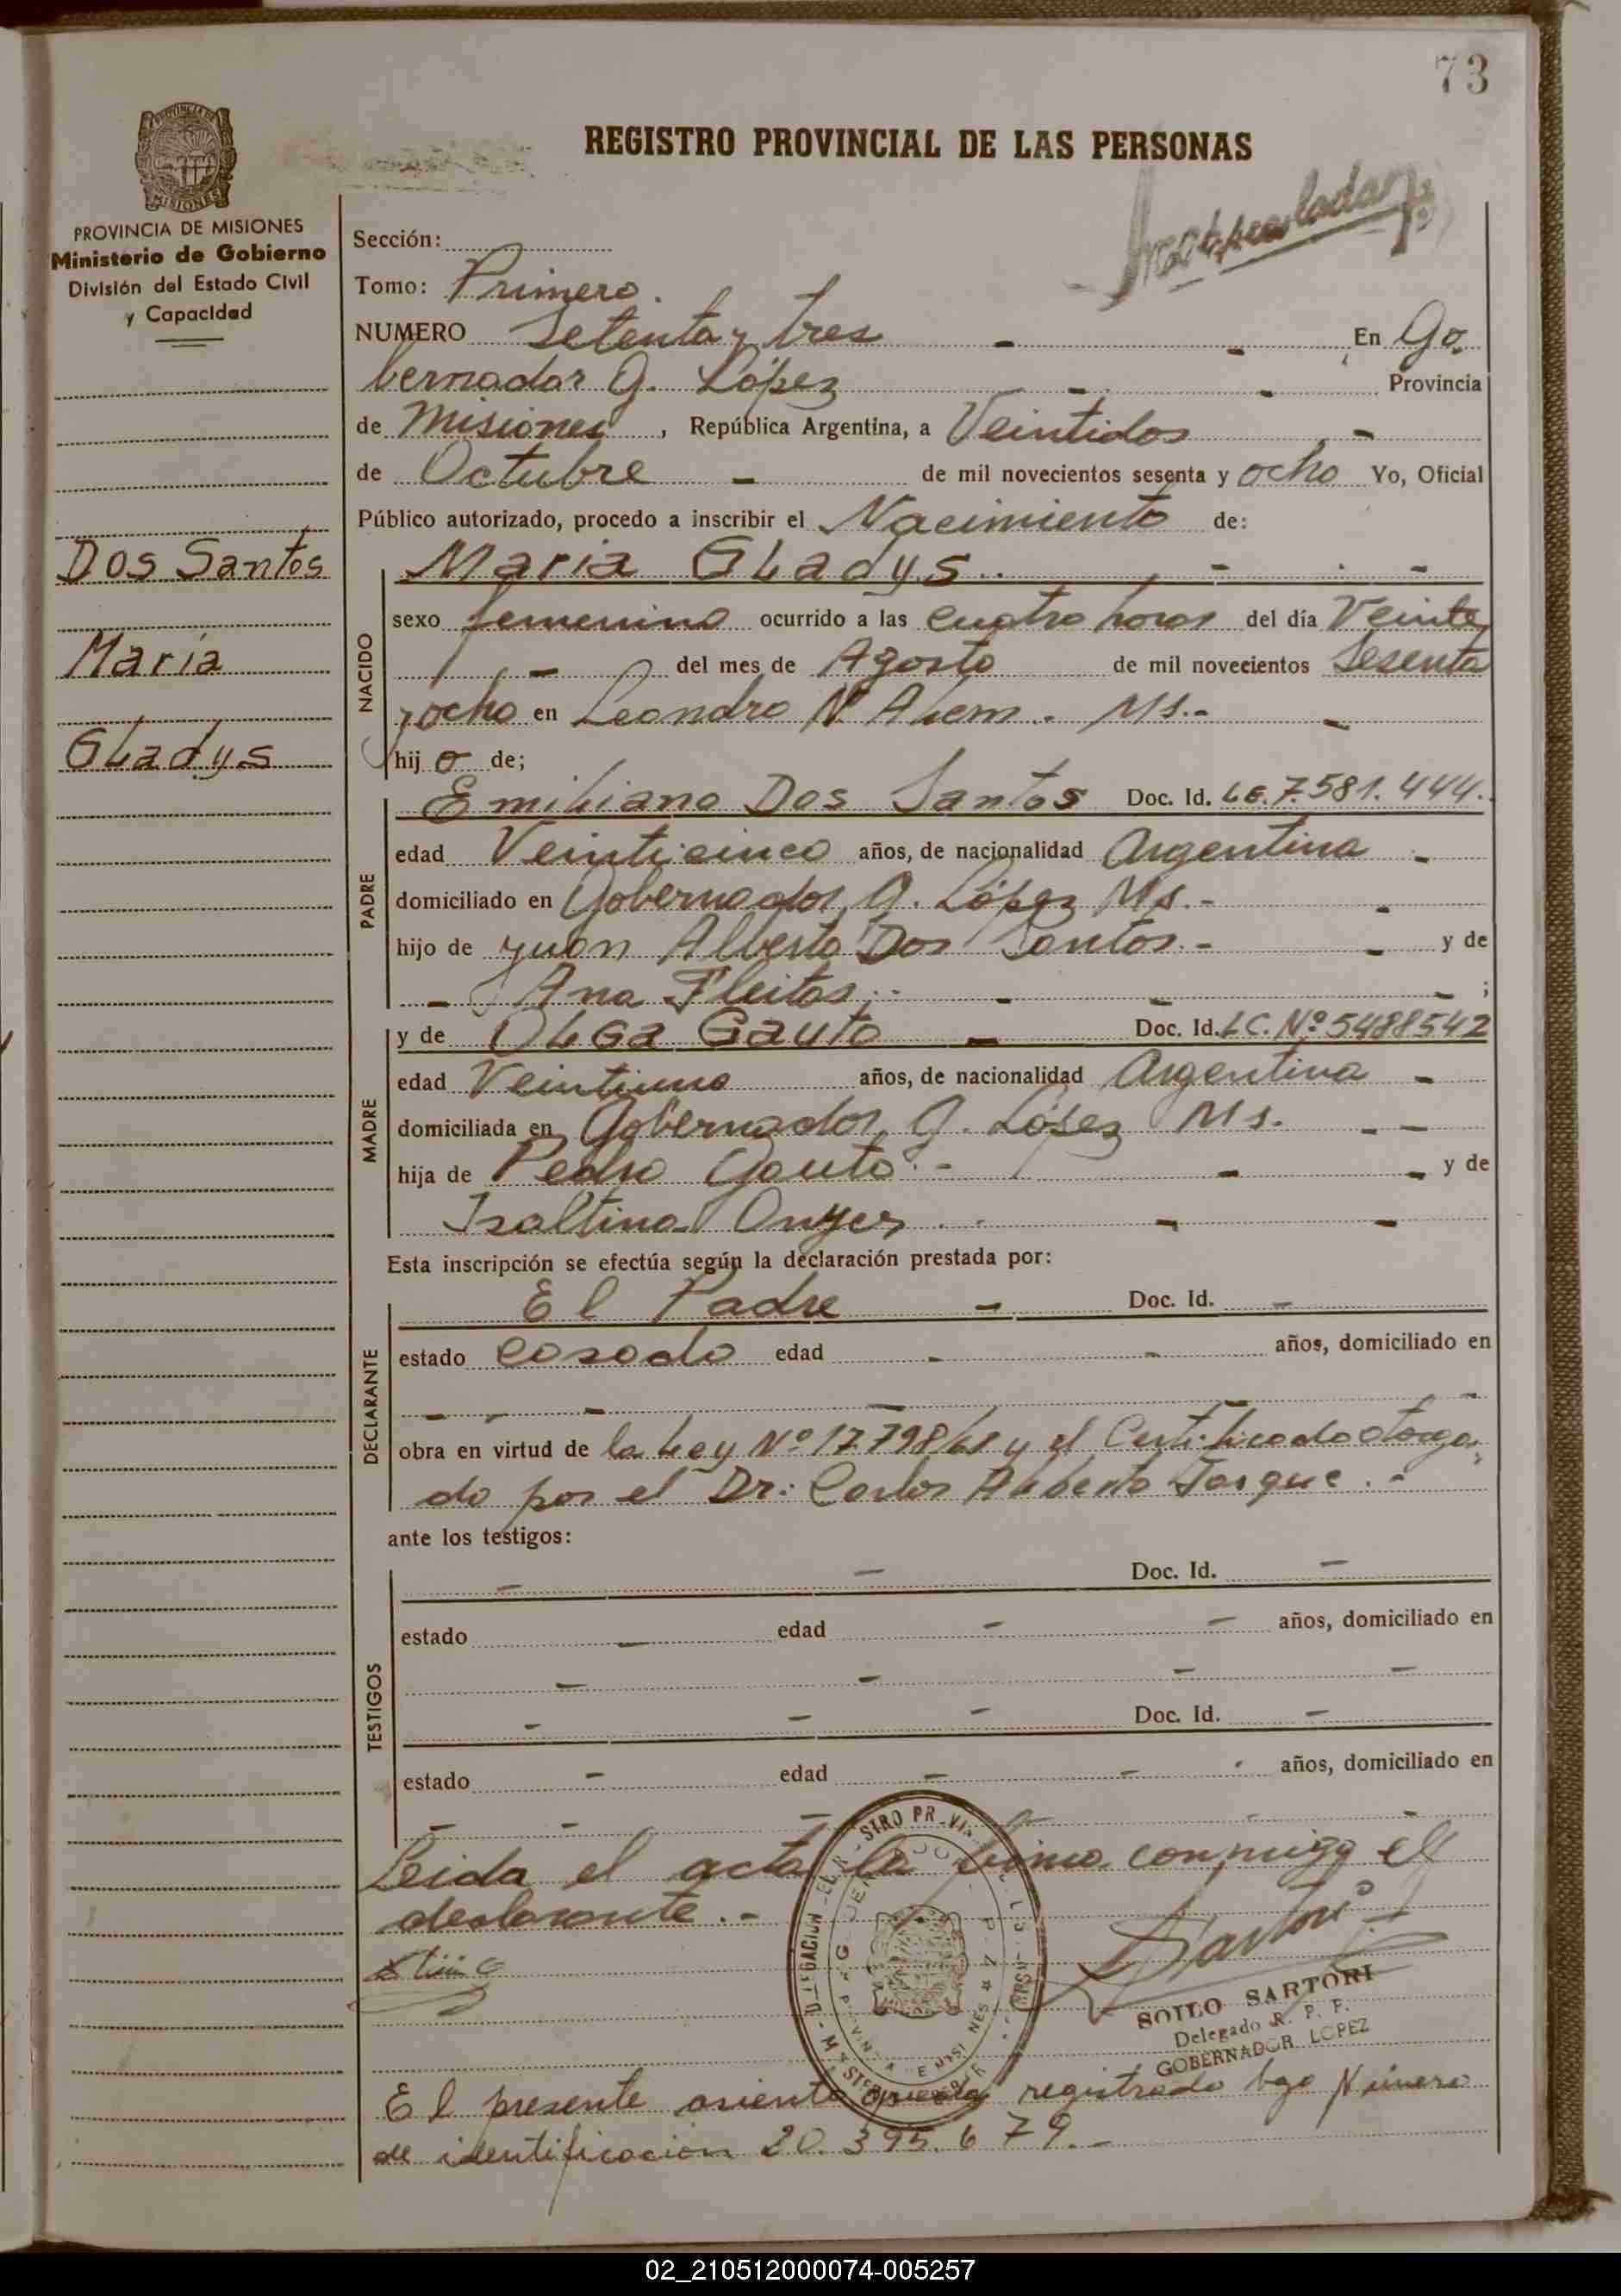 73
REGISTRO PROVINCIAL DE LAS PERSONAS
PROVINCIA DE MISIONES
Ministerio de Gobierno
División del Estado Civil
y Capacidad
Dos Santos
María
Gladys
Sección:
Tomo: Primero.
NUMERO Setenta y tres - - En Go
bernador G. López - - Provincia
de Misiones, República Argentina, a Veintidos -
de Octubre - de mil novecientos sesenta y ocho Yo, Oficial
Público autorizado, procedo a inscribir el Nacimiento de:
Maria Gladys. - -
NACIDO
sexo femenino ocurrido a las cuatro horas del día Veinte
- del mes de Agosto de mil novecientos Sesenta
y ocho en Leandro N. Alem. Ms.- -
hij o de;
PADRE
Emiliano Dos Santos Doc. Id. LE. 7.581.444.
edad Veinticinco años, de nacionalidad Argentina -
domiciliado en Gobernador G. López Ms.- -
hijo de Juan Alberto Dos Santos.- - y de
- Ana Fleitas.- - - - ;
MADRE
y de Olga Gauto - Doc. Id. LC. Nº 5488542
edad Veintiuno años, de nacionalidad Argentina -
domiciliada en Gobernador G. López Ms. - -
hija de Pedro Gauto.- - - y de
Isaltina - -
Esta inscripción se efectúa según la declaración prestada por:
DECLARANTE
El Padre - Doc. Id. -
estado casado edad - - años, domiciliado en
- - - - -
obra en virtud de la Ley Nº 17.798/68 y el Certificado otorga
do por el Dr: Carlos Alberto .-
ante los testigos:
TESTIGOS
- - Doc. Id. -
estado - edad - - años, domiciliado en
- - - -
- - - Doc. Id. -
estado - edad - - años, domiciliado en
- - - -
Leida el acta la firma conmigo el
declarante.-
Sartori
SOILO SARTORI
Delegado R. P. P.
GOBERNADOR LOPEZ
El presente asiento queda registrado bajo Número
de identificacion 20.395.679.-
02_210512000074-005257